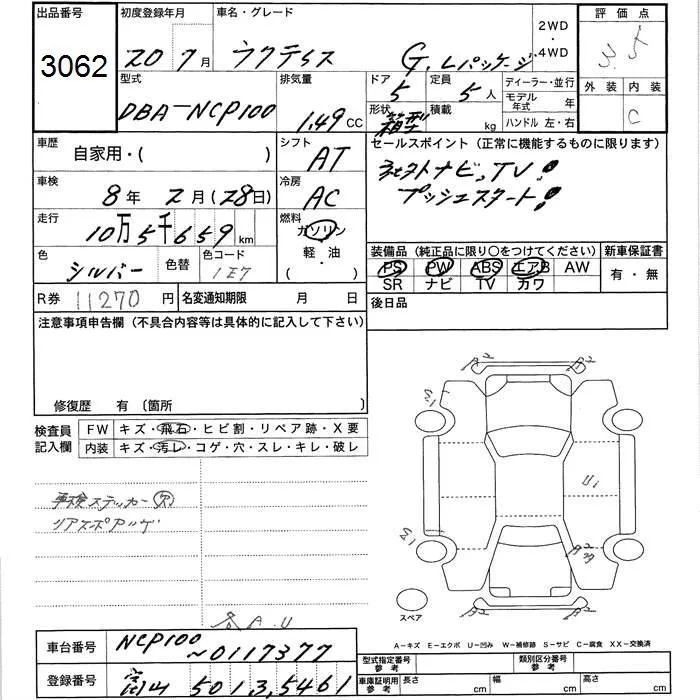 出品番号 初度登録年月 車名・グレード 2WD・4WD 評価点
3062 20 7月 ラクティス G.Lパッケージ 3.5
型式 排気量 ドア 定員 ディーラー・並行 外装 内装
DBA-NCP100 1.49CC 5 5人 モデル年式 年 C
形状 積載 ハンドル 左・右
箱型 kg
車歴 シフト セールスポイント（正常に機能するものに限ります）
自家用・( ) AT ナビ、TV!
車検 冷房 プッシュスタート!
8年 2月(28日) AC
走行 燃料
10万5千659km ガソリン・軽油・( )
装備品（純正品に限り〇をつけてください） 新車保証書
色 色替 色コード PS PW ABS エアB AW 有・無
シルバー 1E7 SR ナビ TV カワ
R券 11270円 名変通知期限 月 日 後日品
注意事項申告欄（不具合内容等は具体的に記入して下さい）
修復歴 有 〔箇所
検査員記入欄 FW キズ・飛石・ヒビ割・リペア跡・X要
内装 キズ・汚レ・コゲ・穴・スレ・キレ・破レ
A2 A2
U1
車検ステッカー(穴)
リアスポアルゲ
A2
A2 A2
スペア
各A.U
車台番号 NCP100~0117377
A－キズ E－エクボ U－凹み W－補修跡 S－サビ C－腐食 XX－交換済
型式指定番号参考 類別区分番号参考
登録番号 富山 501 3,5461
車庫証明用参考 長さ cm 幅 cm 高さ cm